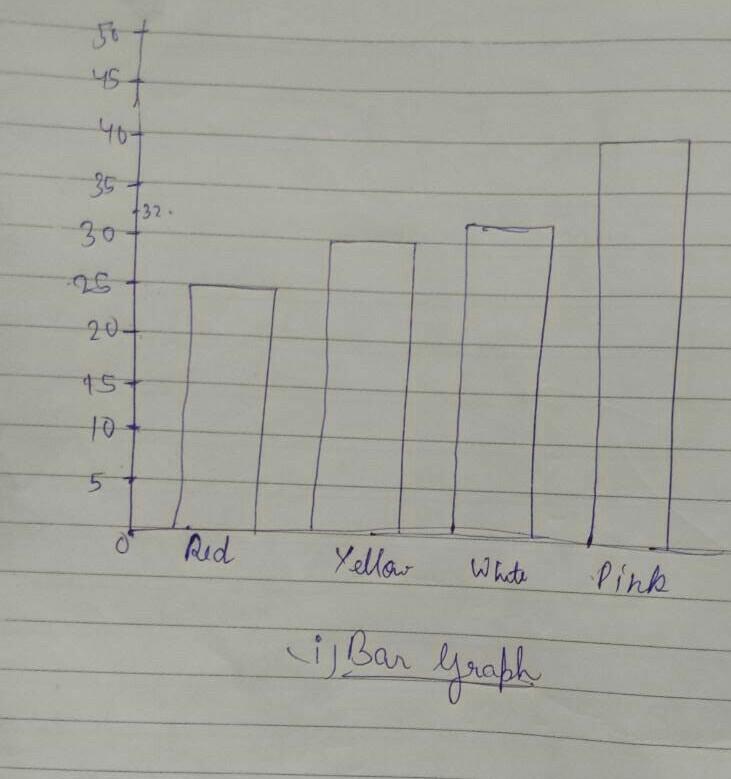 50
45
40
35
32.
30
25
20
15
10
5
0
Red Yellow White Pink
(i) Bar Graph